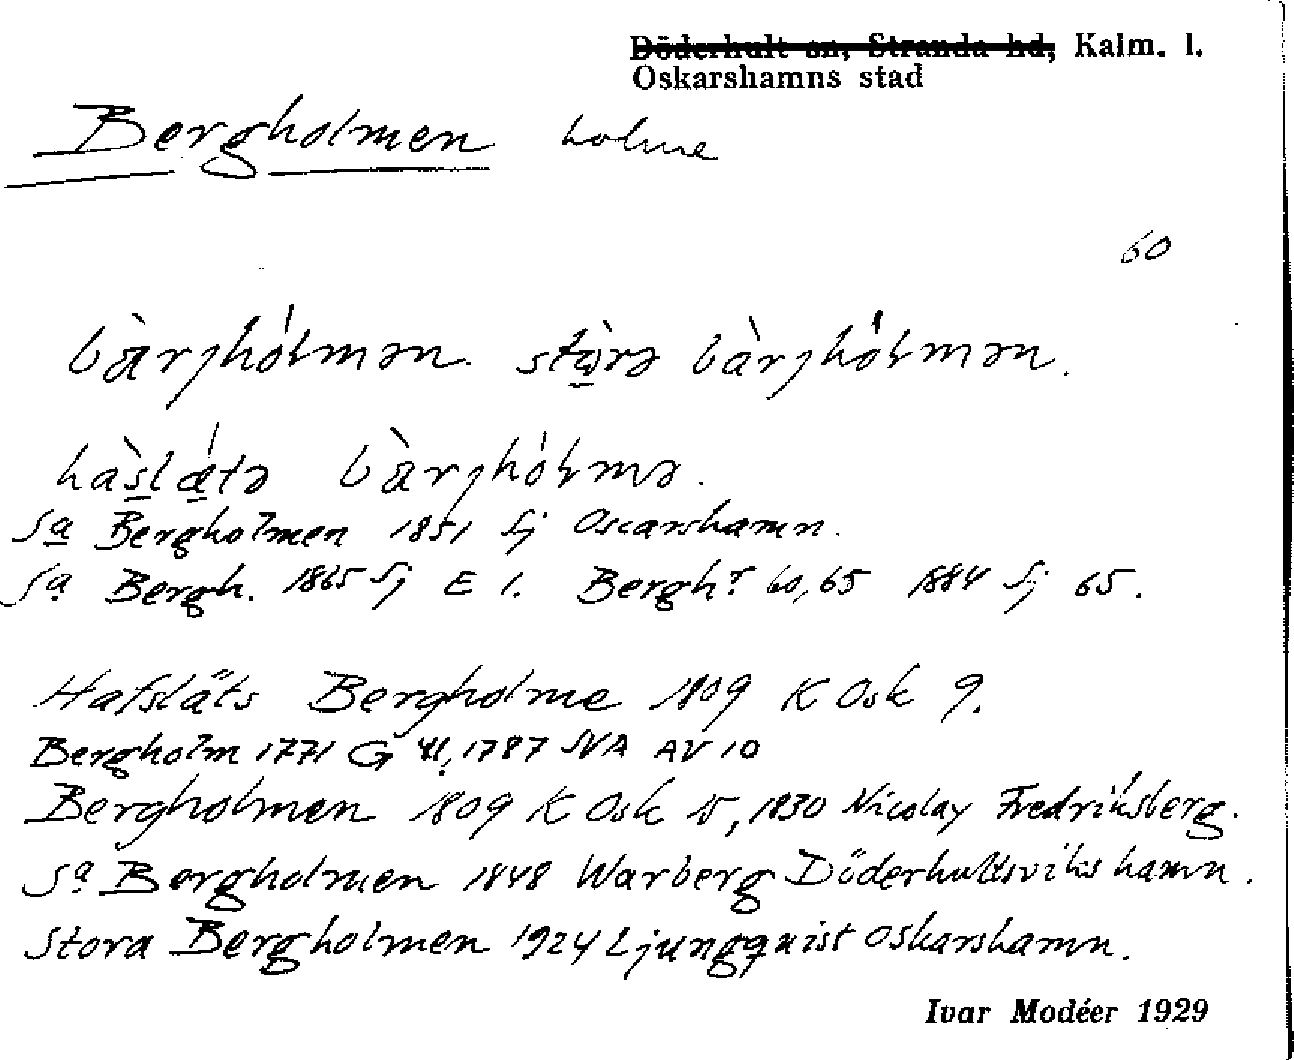 Döderhult sn, Stranda hd, Kalm. l.
Oskarshamns stad
Bergholmen holme
60
bàrjhólmən. stòrə bàrjhólmən.
hàslǽtə bàrjhólmə.
Sa Bergholmen 1851 Sj Oscarshamn.
Sa Bergh. 1865 Sj E 1. Berghr 60,65 1884 Sj 65.
Hafsläts Bergholme 1809 K Osk 9.
Bergholm 1771 G 41, 1787 SVA AV 10
Bergholmen 1809 K Osk 15, 1830 Nicolay Fredriksberg.
Sa Bergholmen 1848 Warberg Döderhultsvikshamn.
Stora Bergholmen 1924 Ljungquist Oskarshamn.
Ivar Modéer 1929